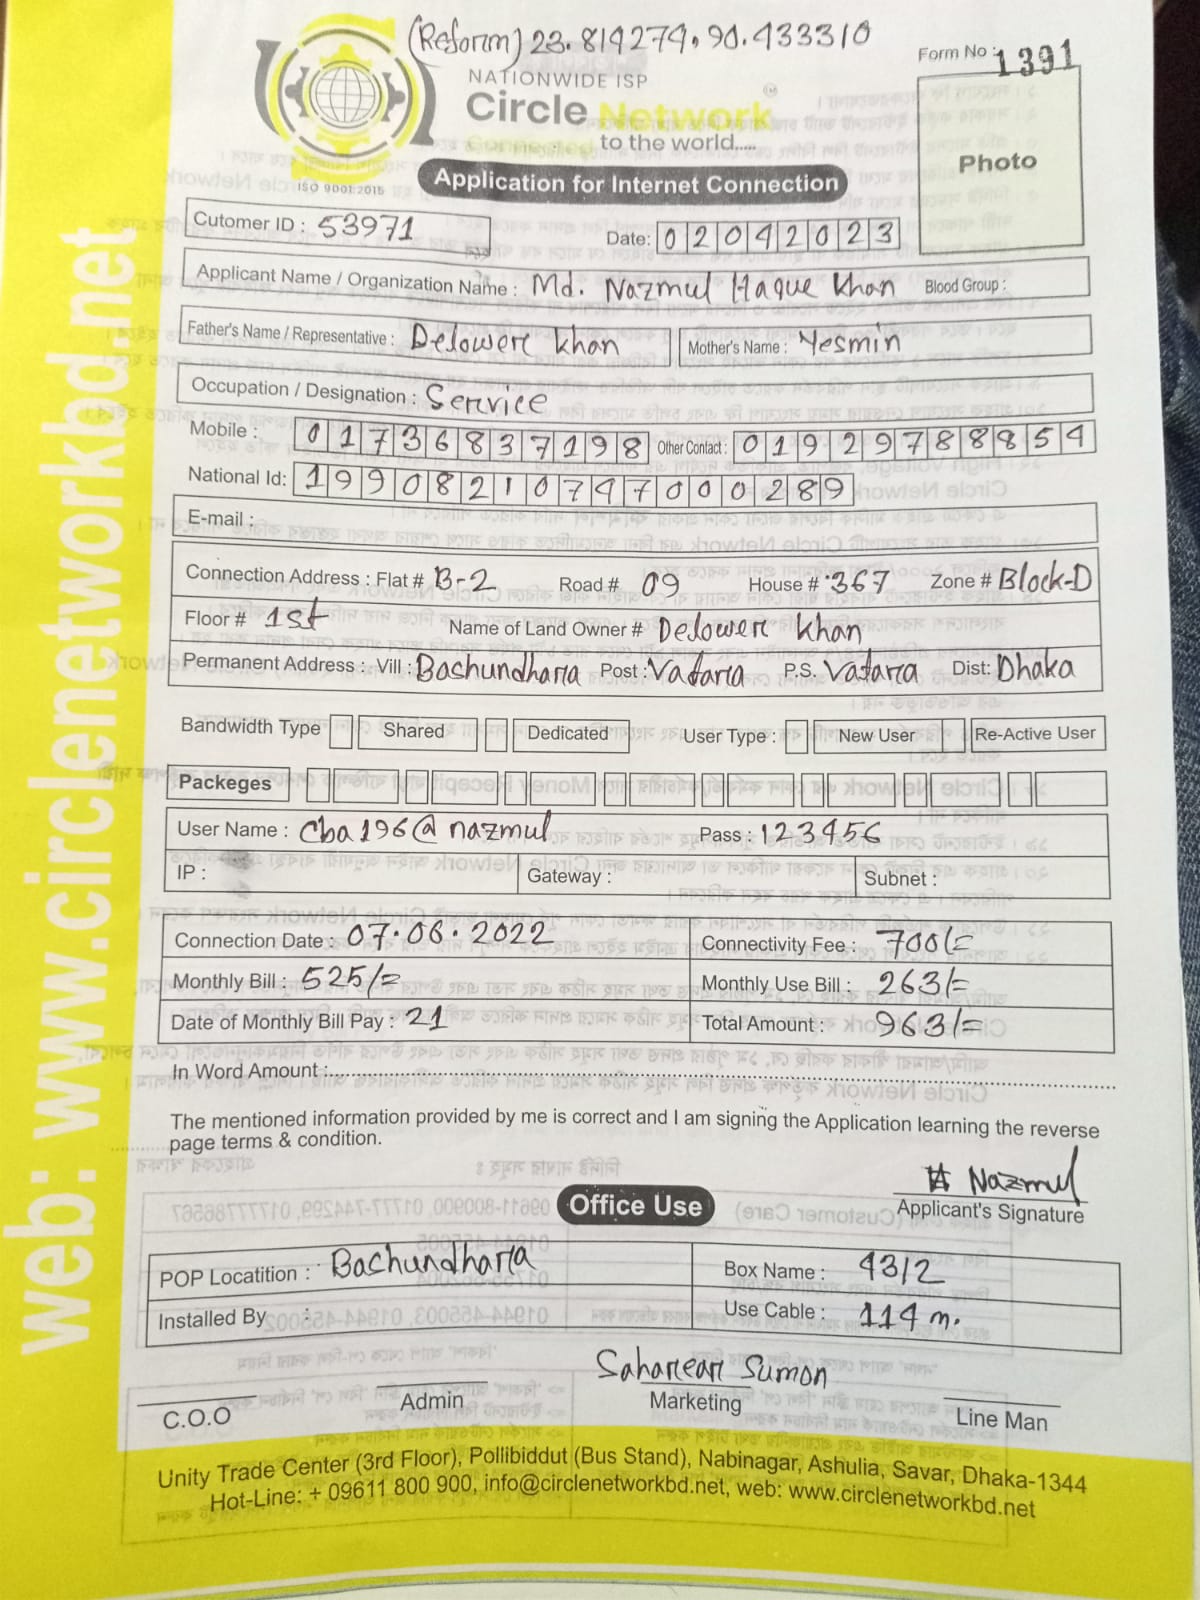 (Reform) 23.814274, 90.433310
Form No : 1391
NATIONWIDE ISP
Circle Network
to the world.....
ISO 9001:2015
Photo
Application for Internet Connection
Cutomer ID : 53971
Date: 02042023
Applicant Name / Organization Name : Md. Nazmul Haque Khan Blood Group :
Father's Name / Representative : Delower Khan Mother's Name : Yesmin
Occupation / Designation : Service
Mobile : 01736837198 Other Contact : 01929788854
National Id: 19908210747000289
E-mail :
Connection Address : Flat # B-2 Road # 09 House # 367 Zone # Block-D
Floor # 1st Name of Land Owner # Delower Khan
Permanent Address : Vill : Bashundhara Post : Vatara P.S. Vatara Dist: Dhaka
Bandwidth Type Shared Dedicated User Type : New User Re-Active User
Packeges
User Name : cba196@nazmul Pass : 123456
IP : Gateway : Subnet :
Connection Date : 07.06.2022 Connectivity Fee : 700/=
Monthly Bill : 525/= Monthly Use Bill : 263/=
Date of Monthly Bill Pay : 21 Total Amount : 963/=
In Word Amount :
The mentioned information provided by me is correct and I am signing the Application learning the reverse
page terms & condition.
Nazmul
Applicant's Signature
Office Use
POP Locatition : Bashundhara Box Name : 4312
Installed By : Use Cable : 114 m.
Saharear Sumon
C.O.O Admin Marketing Line Man
Unity Trade Center (3rd Floor), Pollibiddut (Bus Stand), Nabinagar, Ashulia, Savar, Dhaka-1344
Hot-Line: + 09611 800 900, info@circlenetworkbd.net, web: www.circlenetworkbd.net
web: www.circlenetworkbd.net